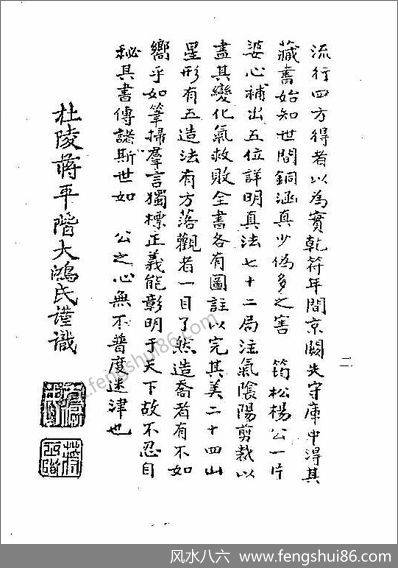 流行四方得者以為寶乾符年間京闕失守庫中得其
藏書始知世間銅涵真少偽多之害 筠松楊公一片
婆心補出五位詳明真法七十二局注氣陰陽剪裁以
盡其變化氣救敗全書各有圖註以完其美二十四山
星形有五造法有方落觀者一目了然造喬者有不如
嚮乎如筆掃羣言獨標正義能彰明于天下故不忍自
秘其書傳諸斯世如 公之心無不普度迷津也
杜陵蔣平階大鴻氏謹識
二
fengshui86.com
风水八六 www.fengshui86.com